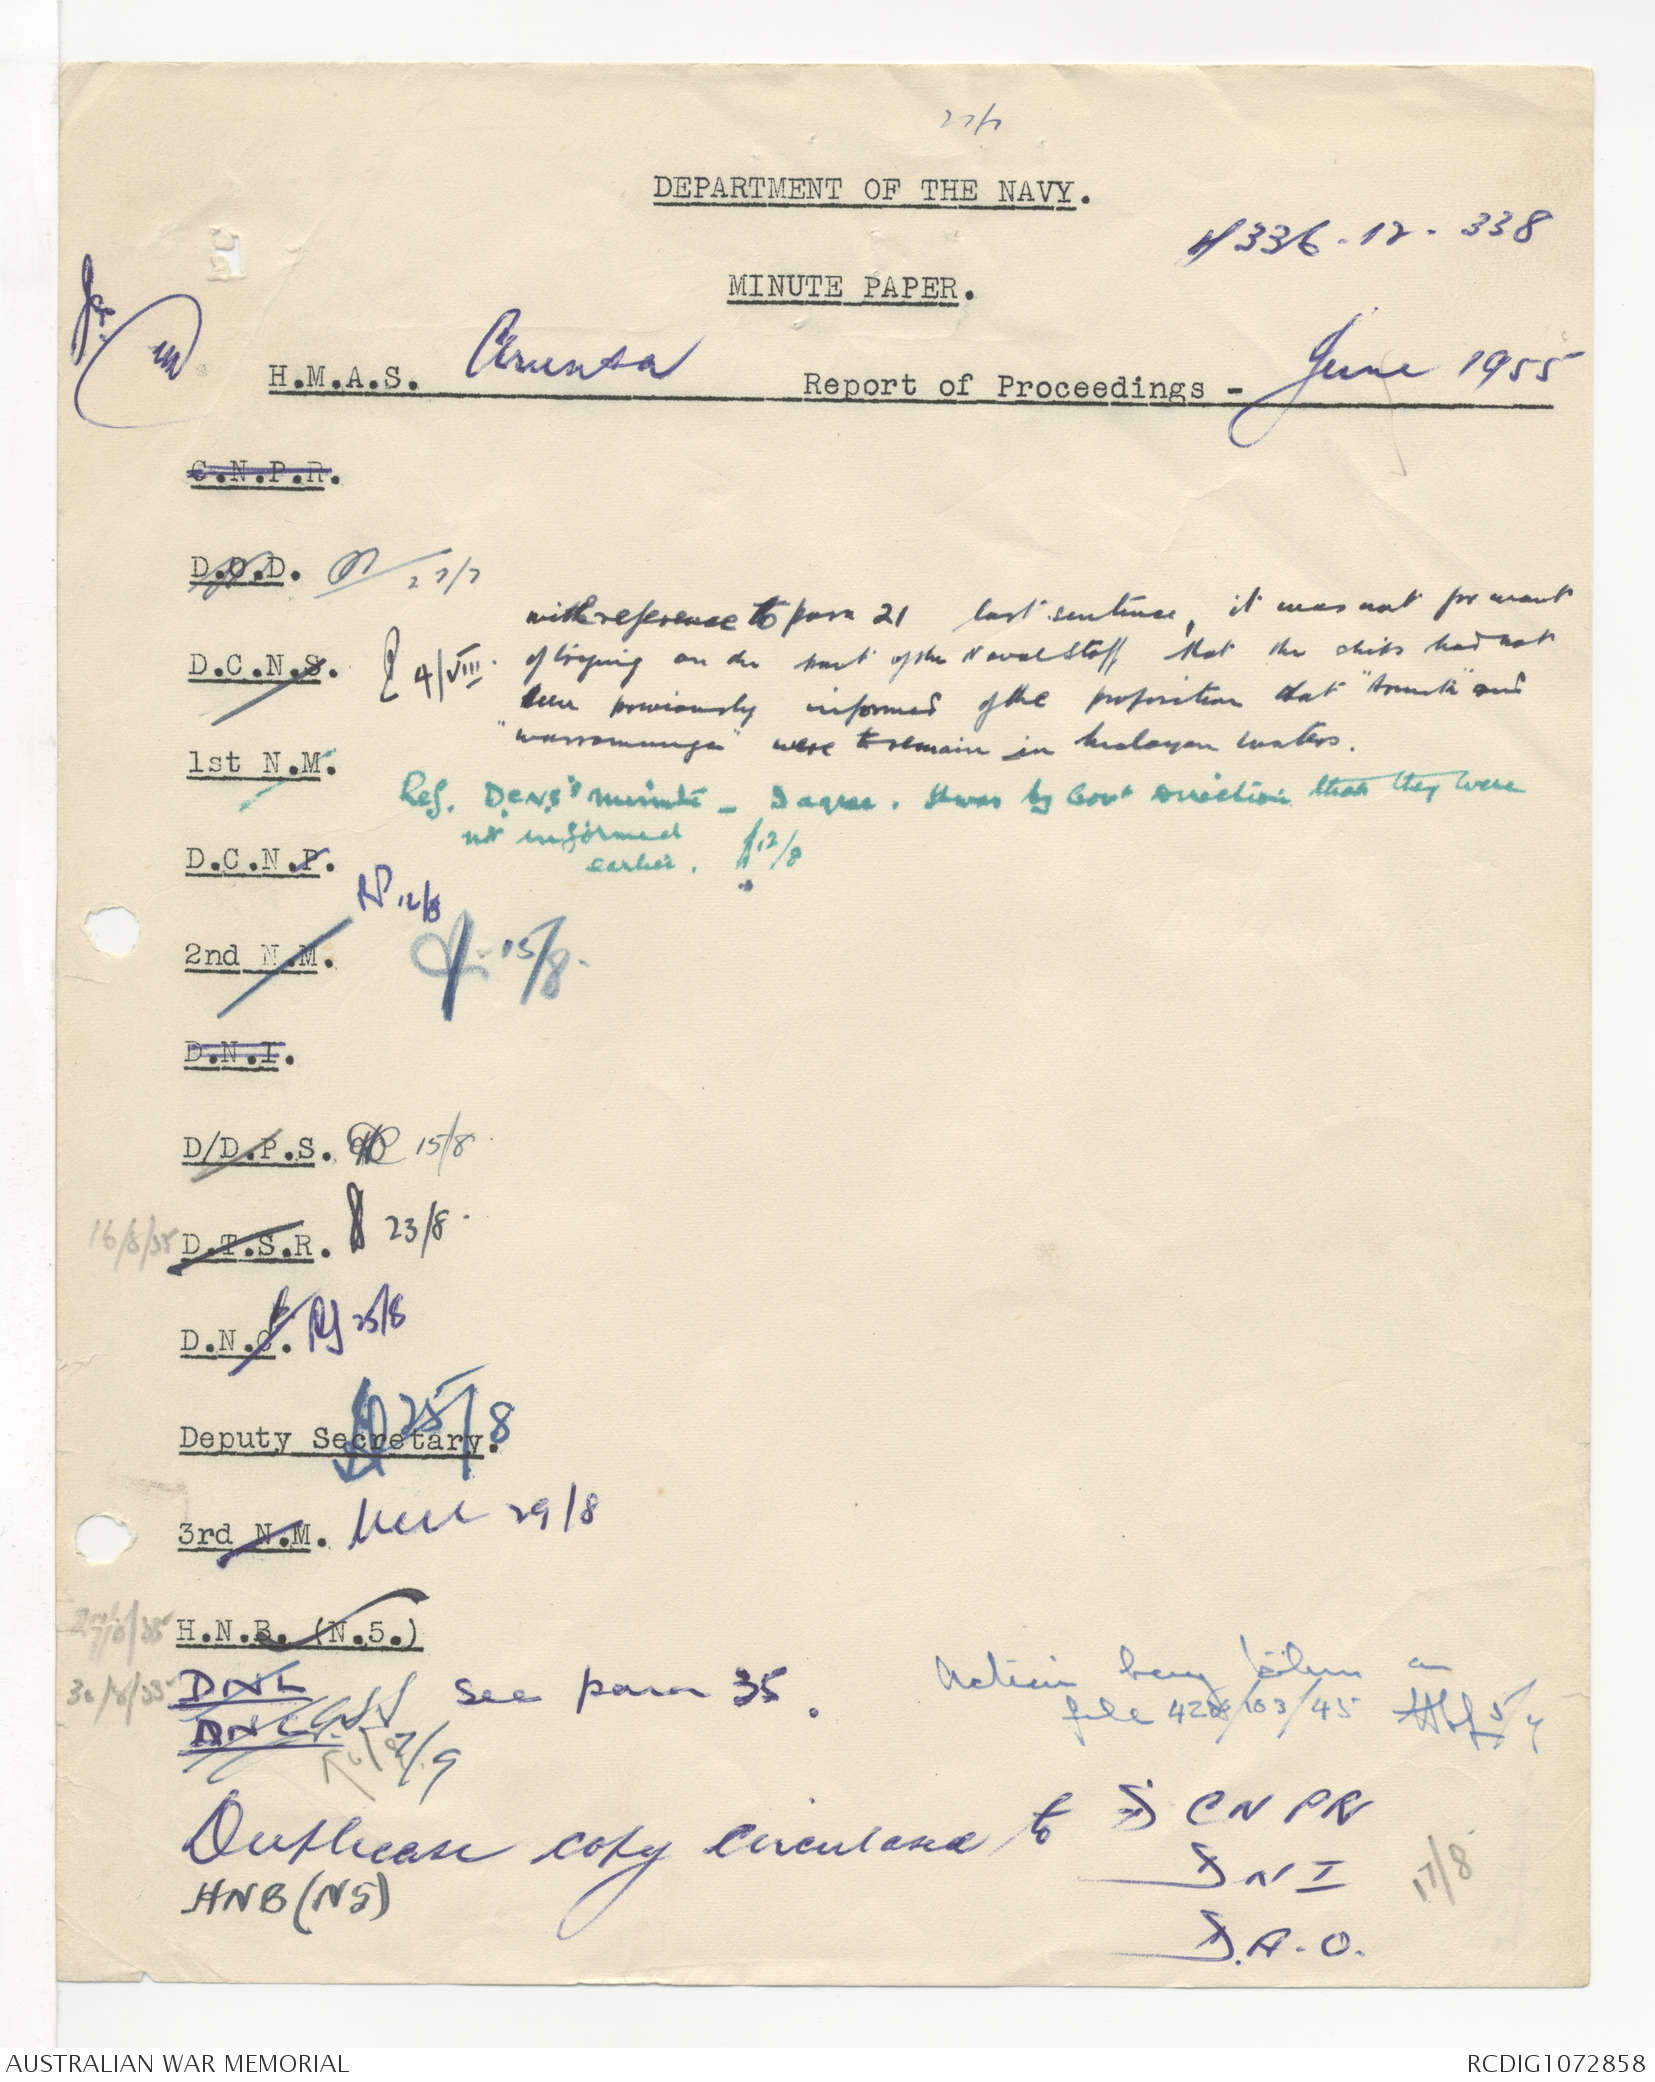 27/7
DEPARTMENT OF THE NAVY.
336-12-338
MINUTE PAPER.
H.M.A.S. Arunta Report of Proceedings - June 1955
C.N.P.R.
D.O.D. 27/7
with reference to para 21 last sentence, it was not for want
D.C.N.S. 4/VIII. of trying on the part of the Naval Staff that the ships had not
been previously informed of the proposition that "Arunta" and
"Warramunga" were to remain in Malayan waters.
1st N.M.
Ref. DCNS's minute - I agree. It was by Govt direction that they were
not informed
earlier. 12/8
D.C.N.P.
12/8
2nd N.M. 15/8.
D.N.I.
D/D.P.S. 15/8.
16/8/55 D.T.S.R. 23/8.
D.N.C. 25/8
Deputy Secretary. 25/8
3rd N.M. 29/8
H.N.B. (N.5.)
30/8/55 DNL see para 35.
Action being taken on
file 428/103/45
DNC 7/9
Duplicate copy circulated to D CNPR
DNI 17/8
HNB (N5)
D.A.O.
AUSTRALIAN WAR MEMORIAL
RCDIG1072858